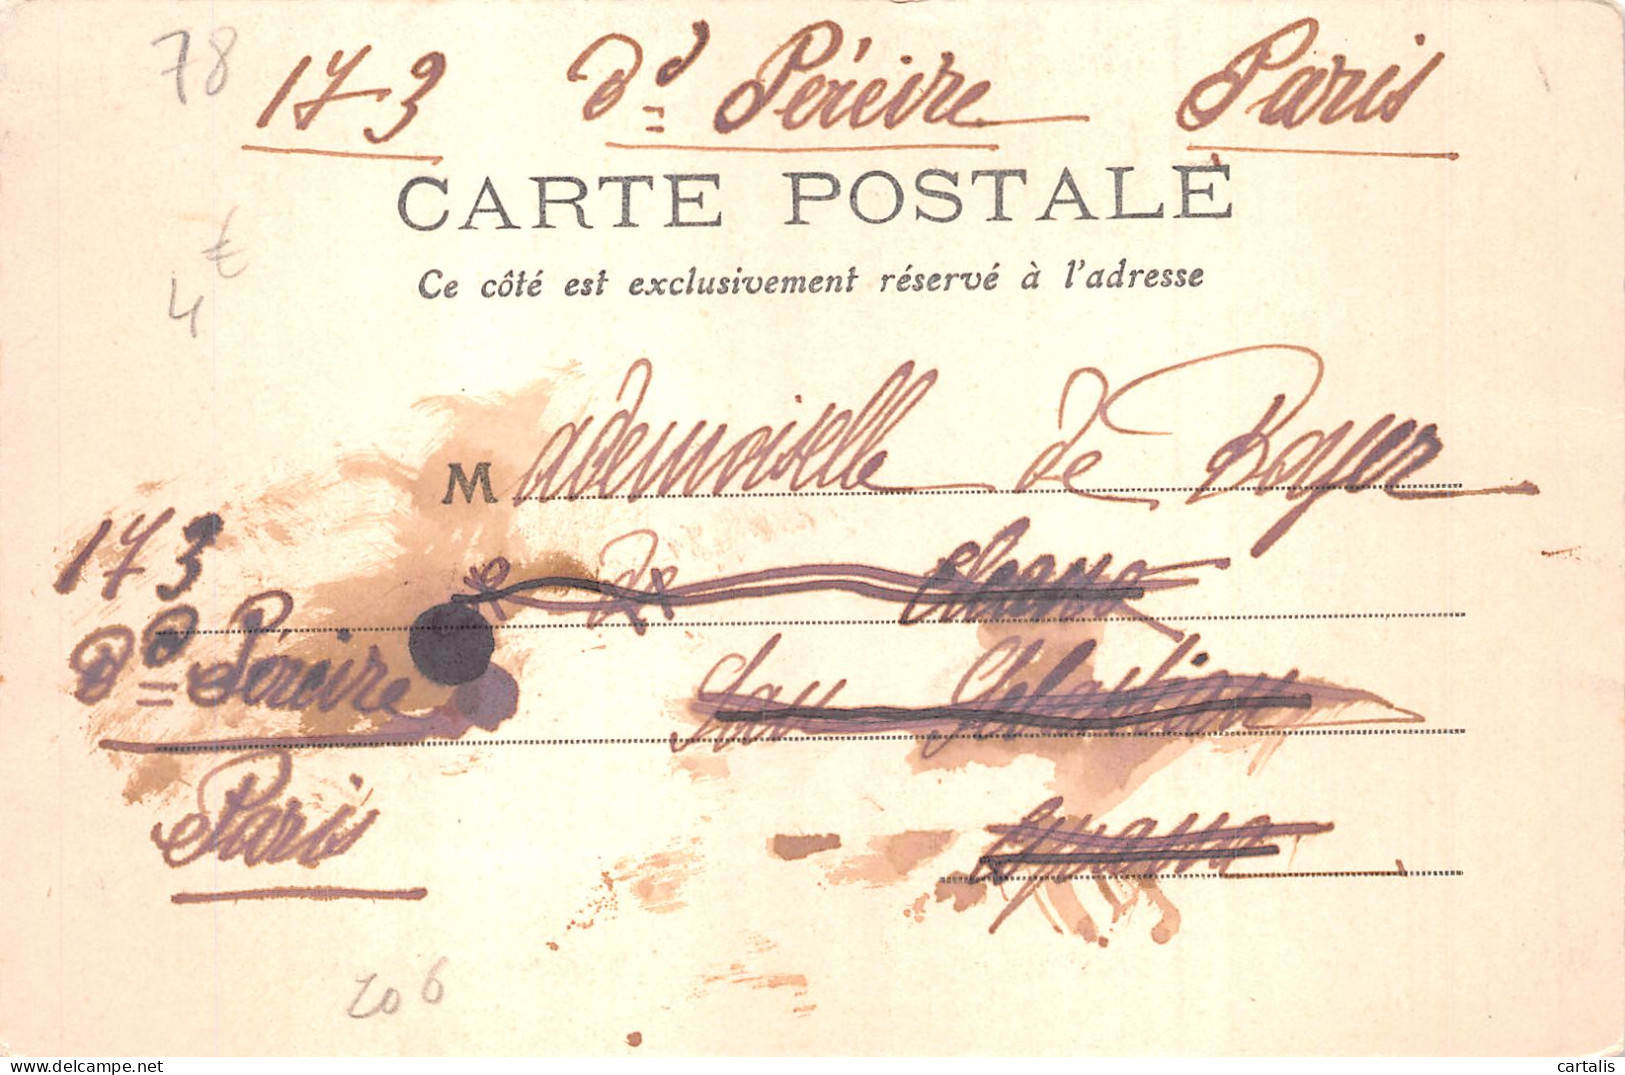 78
173 Bd Péreire Paris
CARTE POSTALE
4€
Ce côté est exclusivement réservé à l'adresse
Mademoiselle de Royer
173
Bd Péreire
San Sebastian
Paris
Espagne
206
cartalis